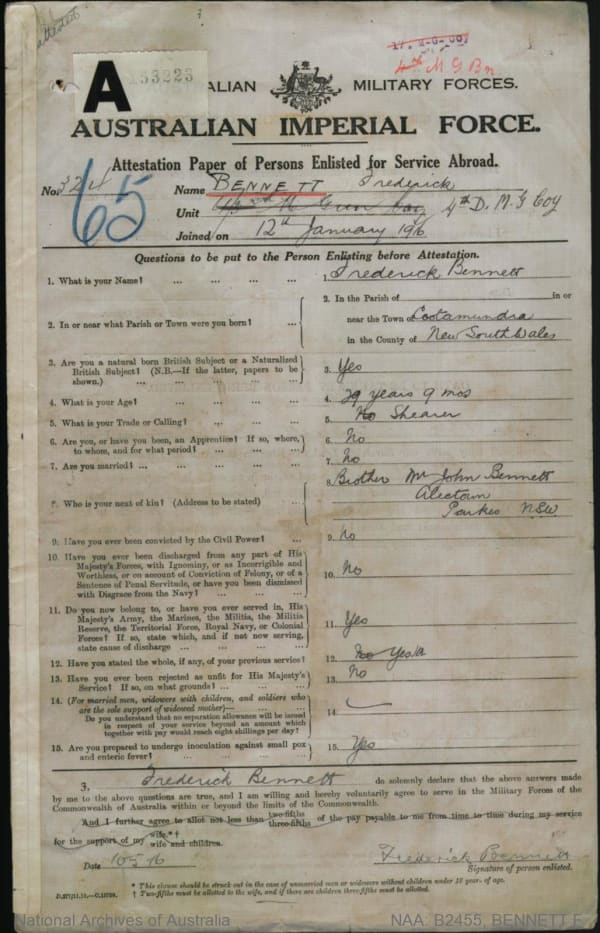 attested
17. M.G. Coy
4th M G Bn
A 33223
ALIAN MILITARY FORCES.
AUSTRALIAN IMPERIAL FORCE.
Attestation Paper of Persons Enlisted for Service Abroad.
No. 324 Name BENNETT Frederick
65
Unit 4th D. M G Coy
Joined on 12th January 1916
Questions to be put to the Person Enlisting before Attestation.
1. What is your Name? ... ... ... ... 1. Frederick Bennett
2. In or near what Parish or Town were you born? ... 2. In the Parish of in or
near the Town of Cootamundra
in the County of New South Wales
3. Are you a natural born British Subject or a Naturalized
British Subject? (N.B.—If the latter, papers to be
shown.) ... ... ... ... 3. Yes
4. What is your Age? ... ... ... ... 4. 29 years 9 mos
5. What is your Trade or Calling? ... ... ... 5. No Shearer
6. Are you, or have you been, an Apprentice? If so, where,
to whom, and for what period? ... ... ... 6. No
7. Are you married? ... ... ... ... 7. No
8. Who is your next of kin? (Address to be stated) ... 8. Brother Mr John Bennett
Alectown
Parkes NSW
9. Have you ever been convicted by the Civil Power? ... 9. No
10. Have you ever been discharged from any part of His
Majesty's Forces, with Ignominy, or as Incorrigible and
Worthless, or on account of Conviction of Felony, or of a
Sentence of Penal Servitude, or have you been dismissed
with Disgrace from the Navy? ... ... ... 10. No
11. Do you now belong to, or have you ever served in, His
Majesty's Army, the Marines, the Militia, the Militia
Reserve, the Territorial Force, Royal Navy, or Colonial
Forces? If so, state which, and if not now serving,
state cause of discharge ... ... ... ... 11. Yes
12. Have you stated the whole, if any, of your previous service? 12. No Yes
13. Have you ever been rejected as unfit for His Majesty's
Service? If so, on what grounds? ... ... ... 13. No
14. (For married men, widowers with children, and soldiers who
are the sole support of widowed mother)—
Do you understand that no separation allowance will be issued
in respect of your service beyond an amount which
together with pay would reach eight shillings per day? 14.
15. Are you prepared to undergo inoculation against small pox
and enteric fever? ... ... ... ... 15. Yes
I, Frederick Bennett do solemnly declare that the above answers made
by me to the above questions are true, and I am willing and hereby voluntarily agree to serve in the Military Forces of the
Commonwealth of Australia within or beyond the limits of the Commonwealth.
And I further agree to allot not less than two-fifths three-fifths of the pay payable to me from time to time during my service
for the support of my wife.*† wife and children.
Date 10 5 16
Frederick Bennett
Signature of person enlisted.
* This clause should be struck out in the case of unmarried men or widowers without children under 18 years of age.
† Two-fifths must be allotted to the wife, and if there are children three-fifths must be allotted.
National Archives of Australia NAA: B2455, BENNETT F